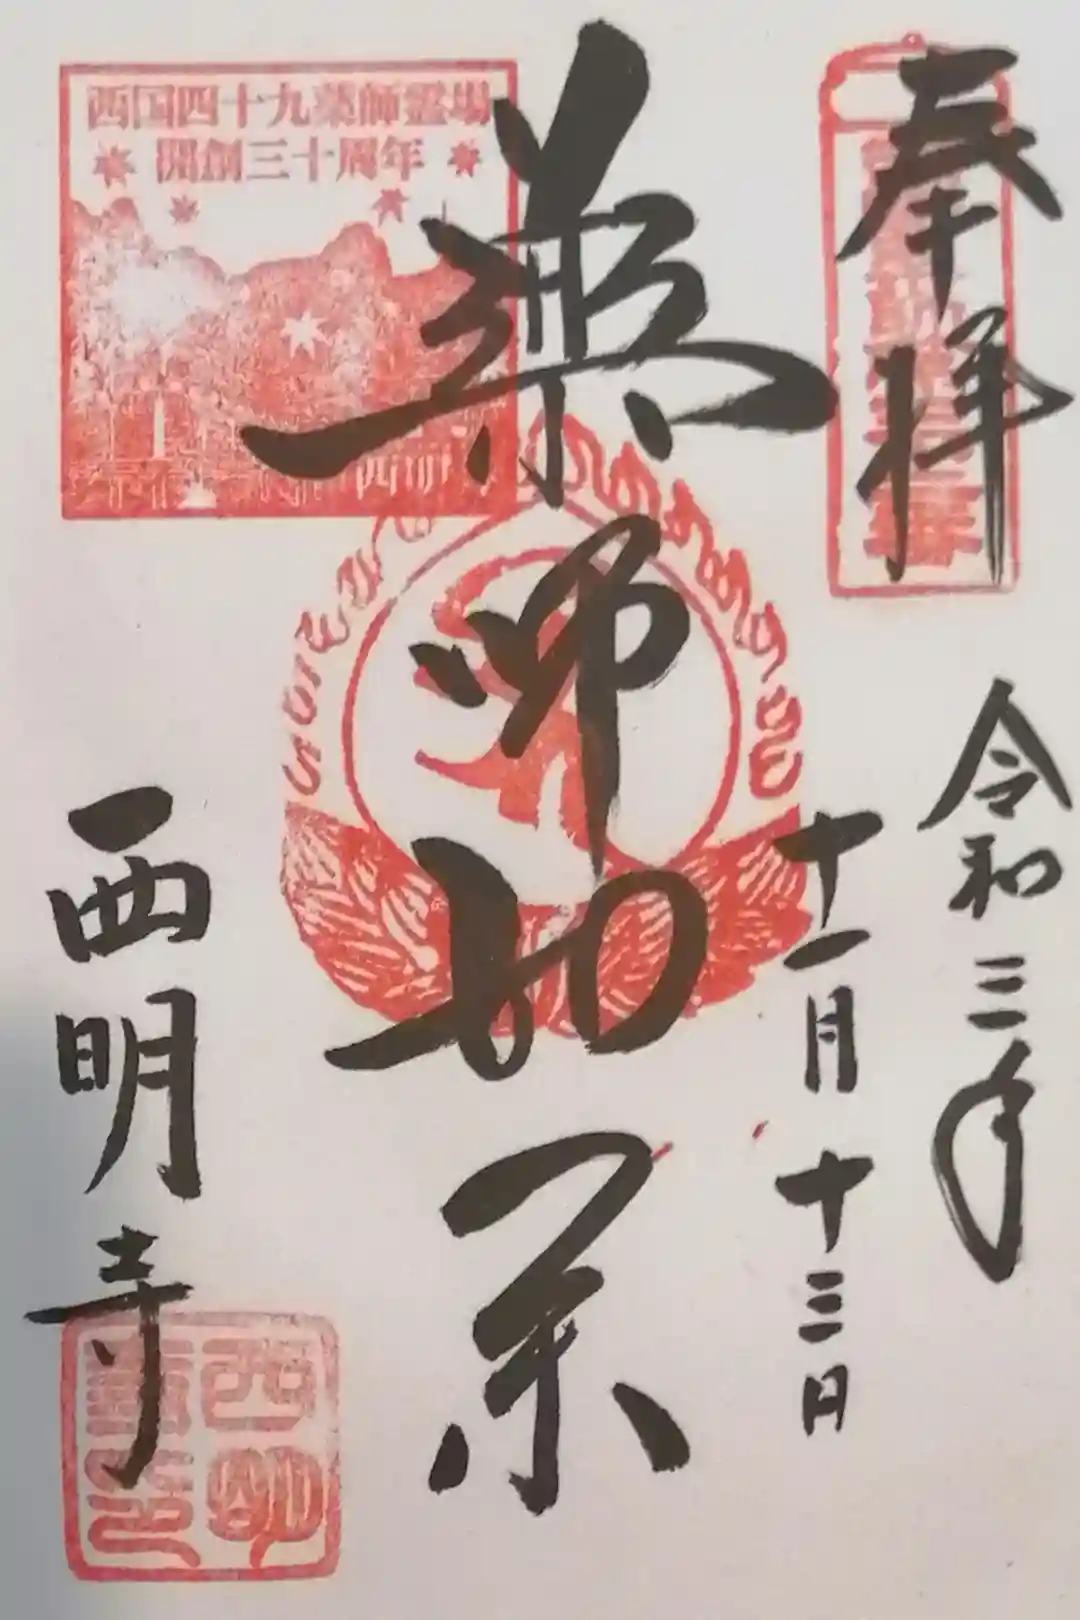 奉拝
令和三年
十一月十三日
薬師如来
西国四十九薬師霊場
開創三十周年
西明寺
西明寺
西明寺印